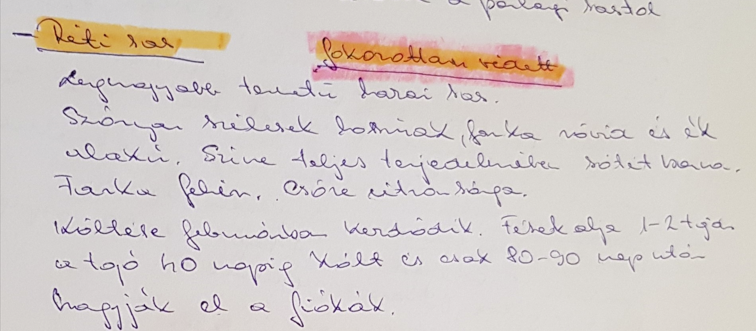 a parlagi sastól
- Réti sas fokozottan védett
Legnagyobb termetű hazai sas.
Szárnyai szélesek hosszúak, farka rövid és ék
alakú. Színe teljes terjedelmében sötét barna.
Farka fehér, csőre citromsárga.
Költése februárban kezdődik. Fészekalja 1-2 tojás
a tojó 40 napig költ és csak 80-90 nap után
hagyják el a fiókák.